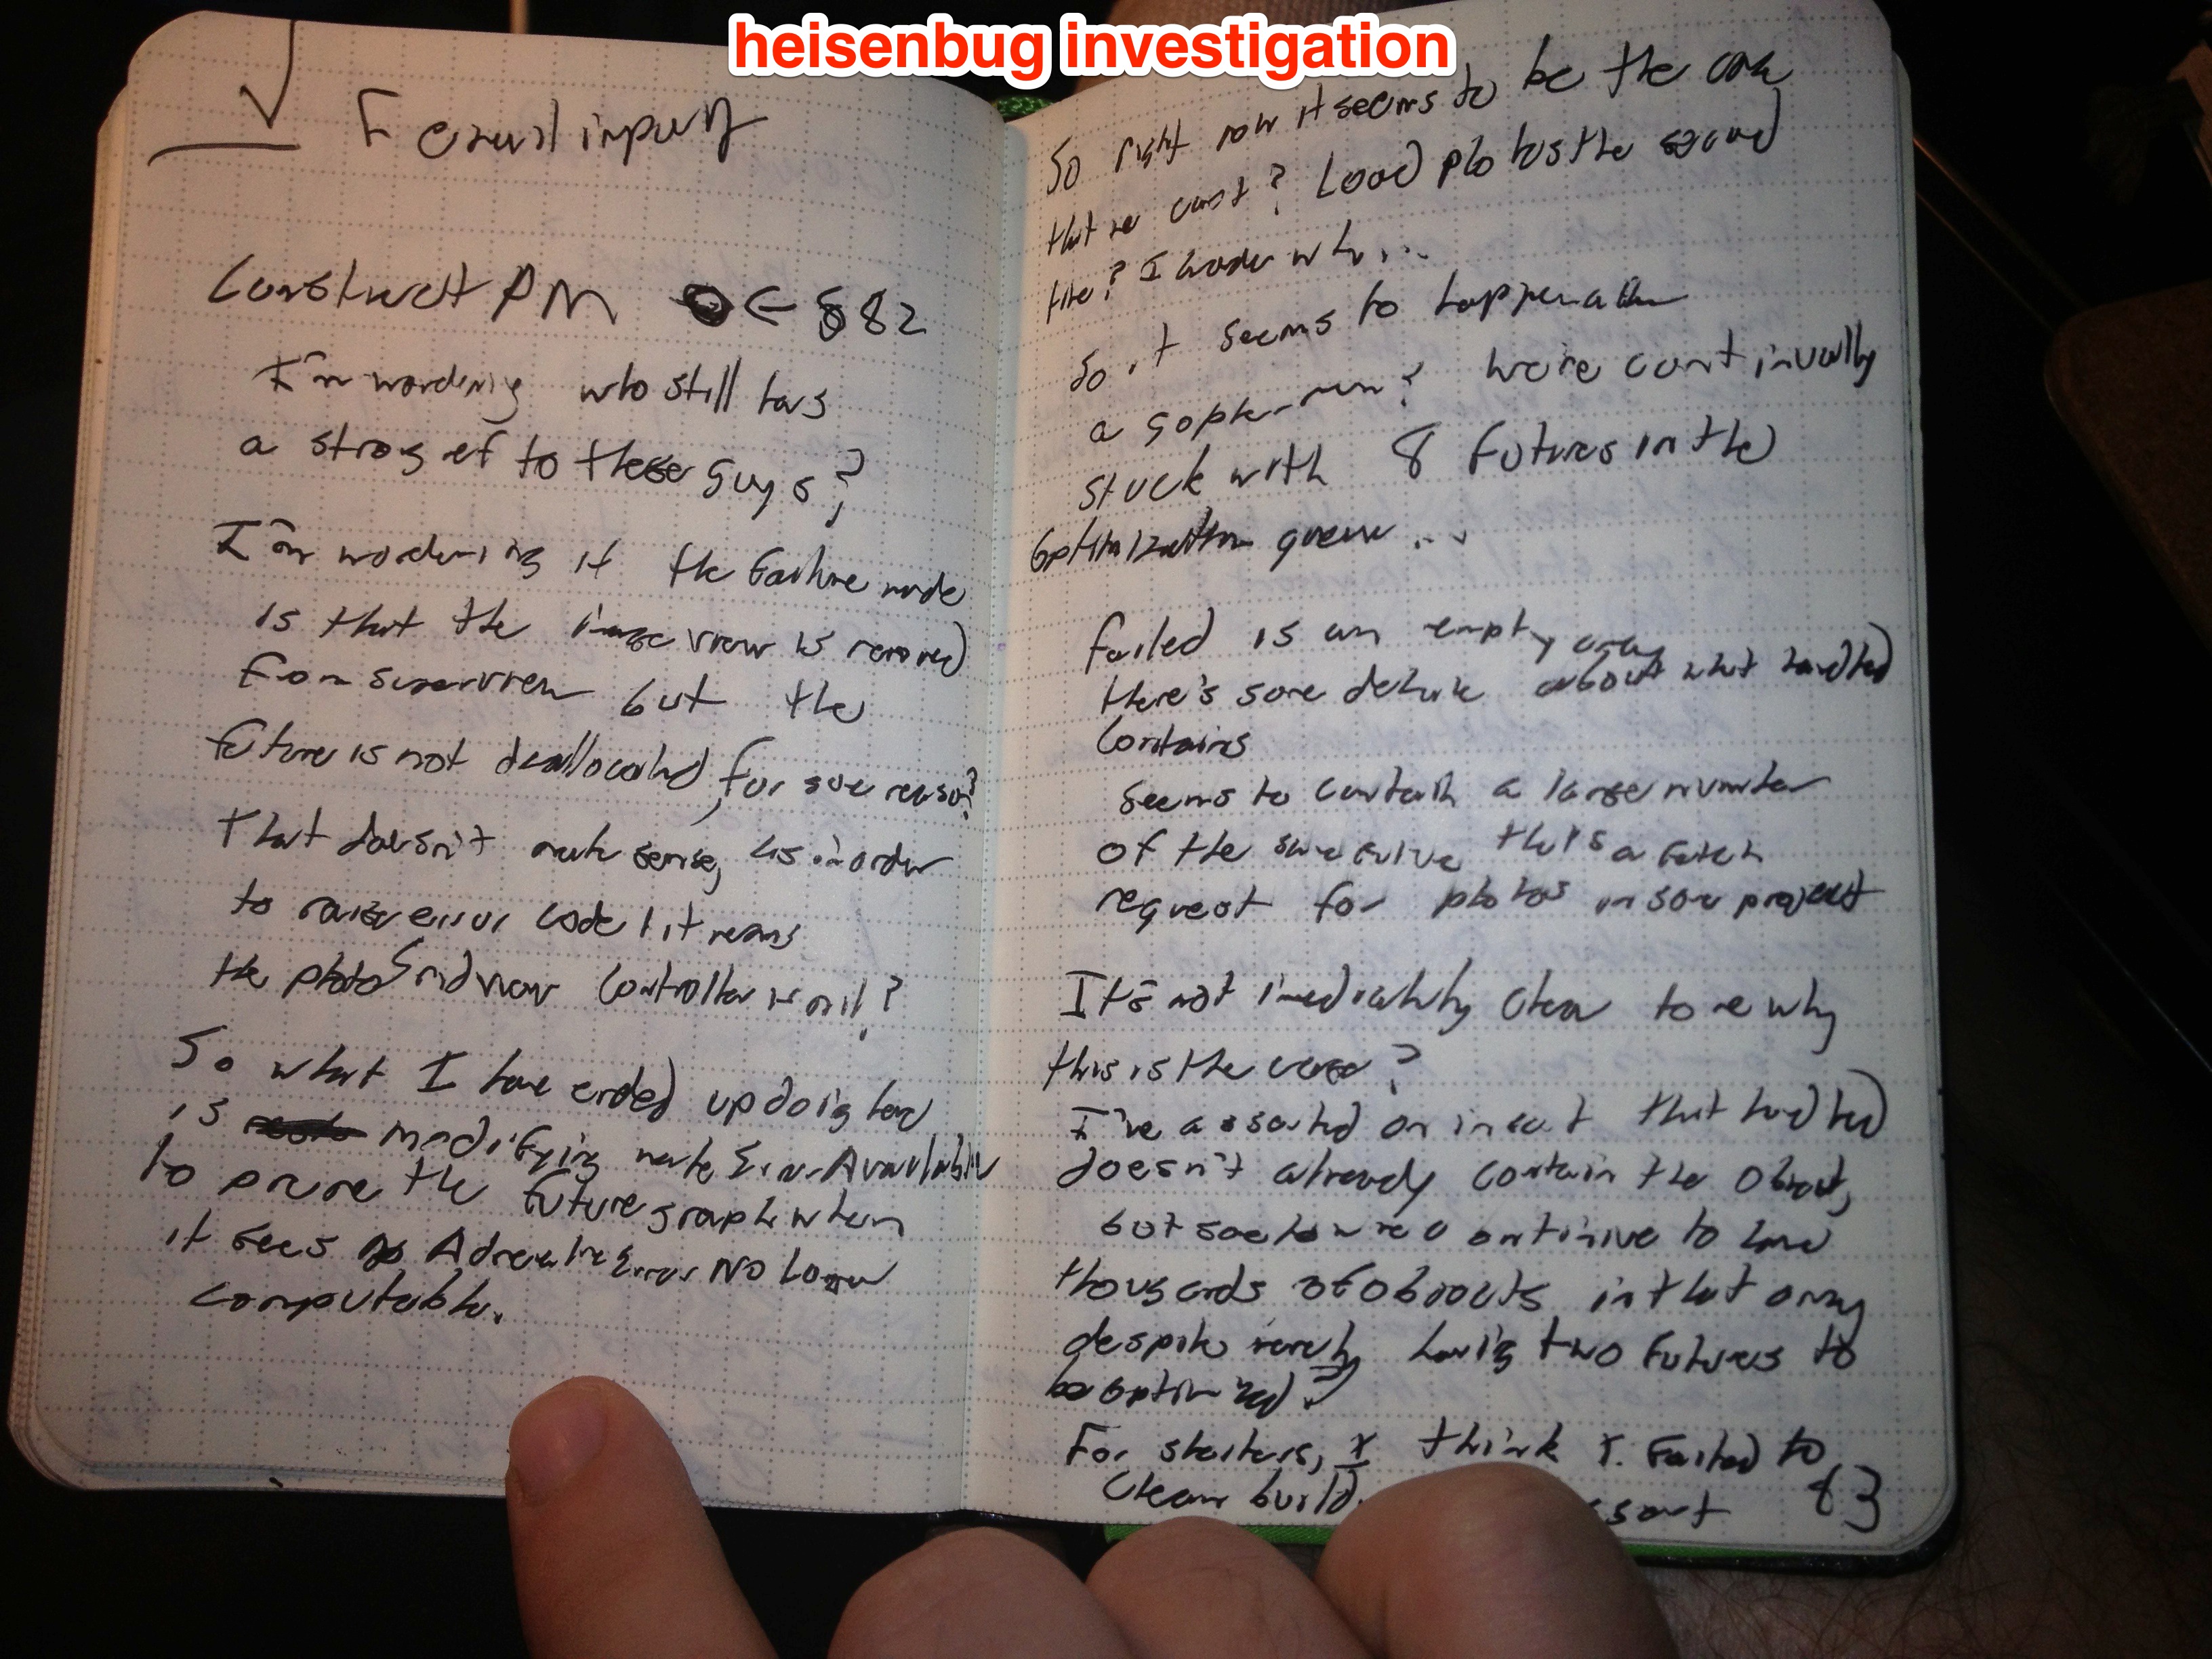 heisenbug investigation
Construct PM 882
I'm wondering who still has
a strong ref to these guys?
I'm wondering if the failure mode
is that the image view is removed
from superview but the
future is not deallocated, for some reason?
That doesn't make sense, as in order
to raise error code 1 it means
the photoGridView Controller is nil?
So what I have ended up doing here
is modifying make Error Available
to prune the future graph when
it sees Error No Longer
computable.
So right now it seems to be the case
that we can't? Load photos the second
time? I wonder why...
So it seems to happen
a We're continually
stuck with 8 futures in the
optimization queue...
failed is an empty array
there's some debate about what handled
contains
seems to contain a large number
of the same future that's a fetch
request for photos in some project
It's not immediately clear to me why
this is the case?
I've asserted on insert that handled
doesn't already contain the object,
but somehow we continue to have
thousands of objects in that array
despite merely having two futures to
be optimized?
For starters, I think I failed to
clean build.
83